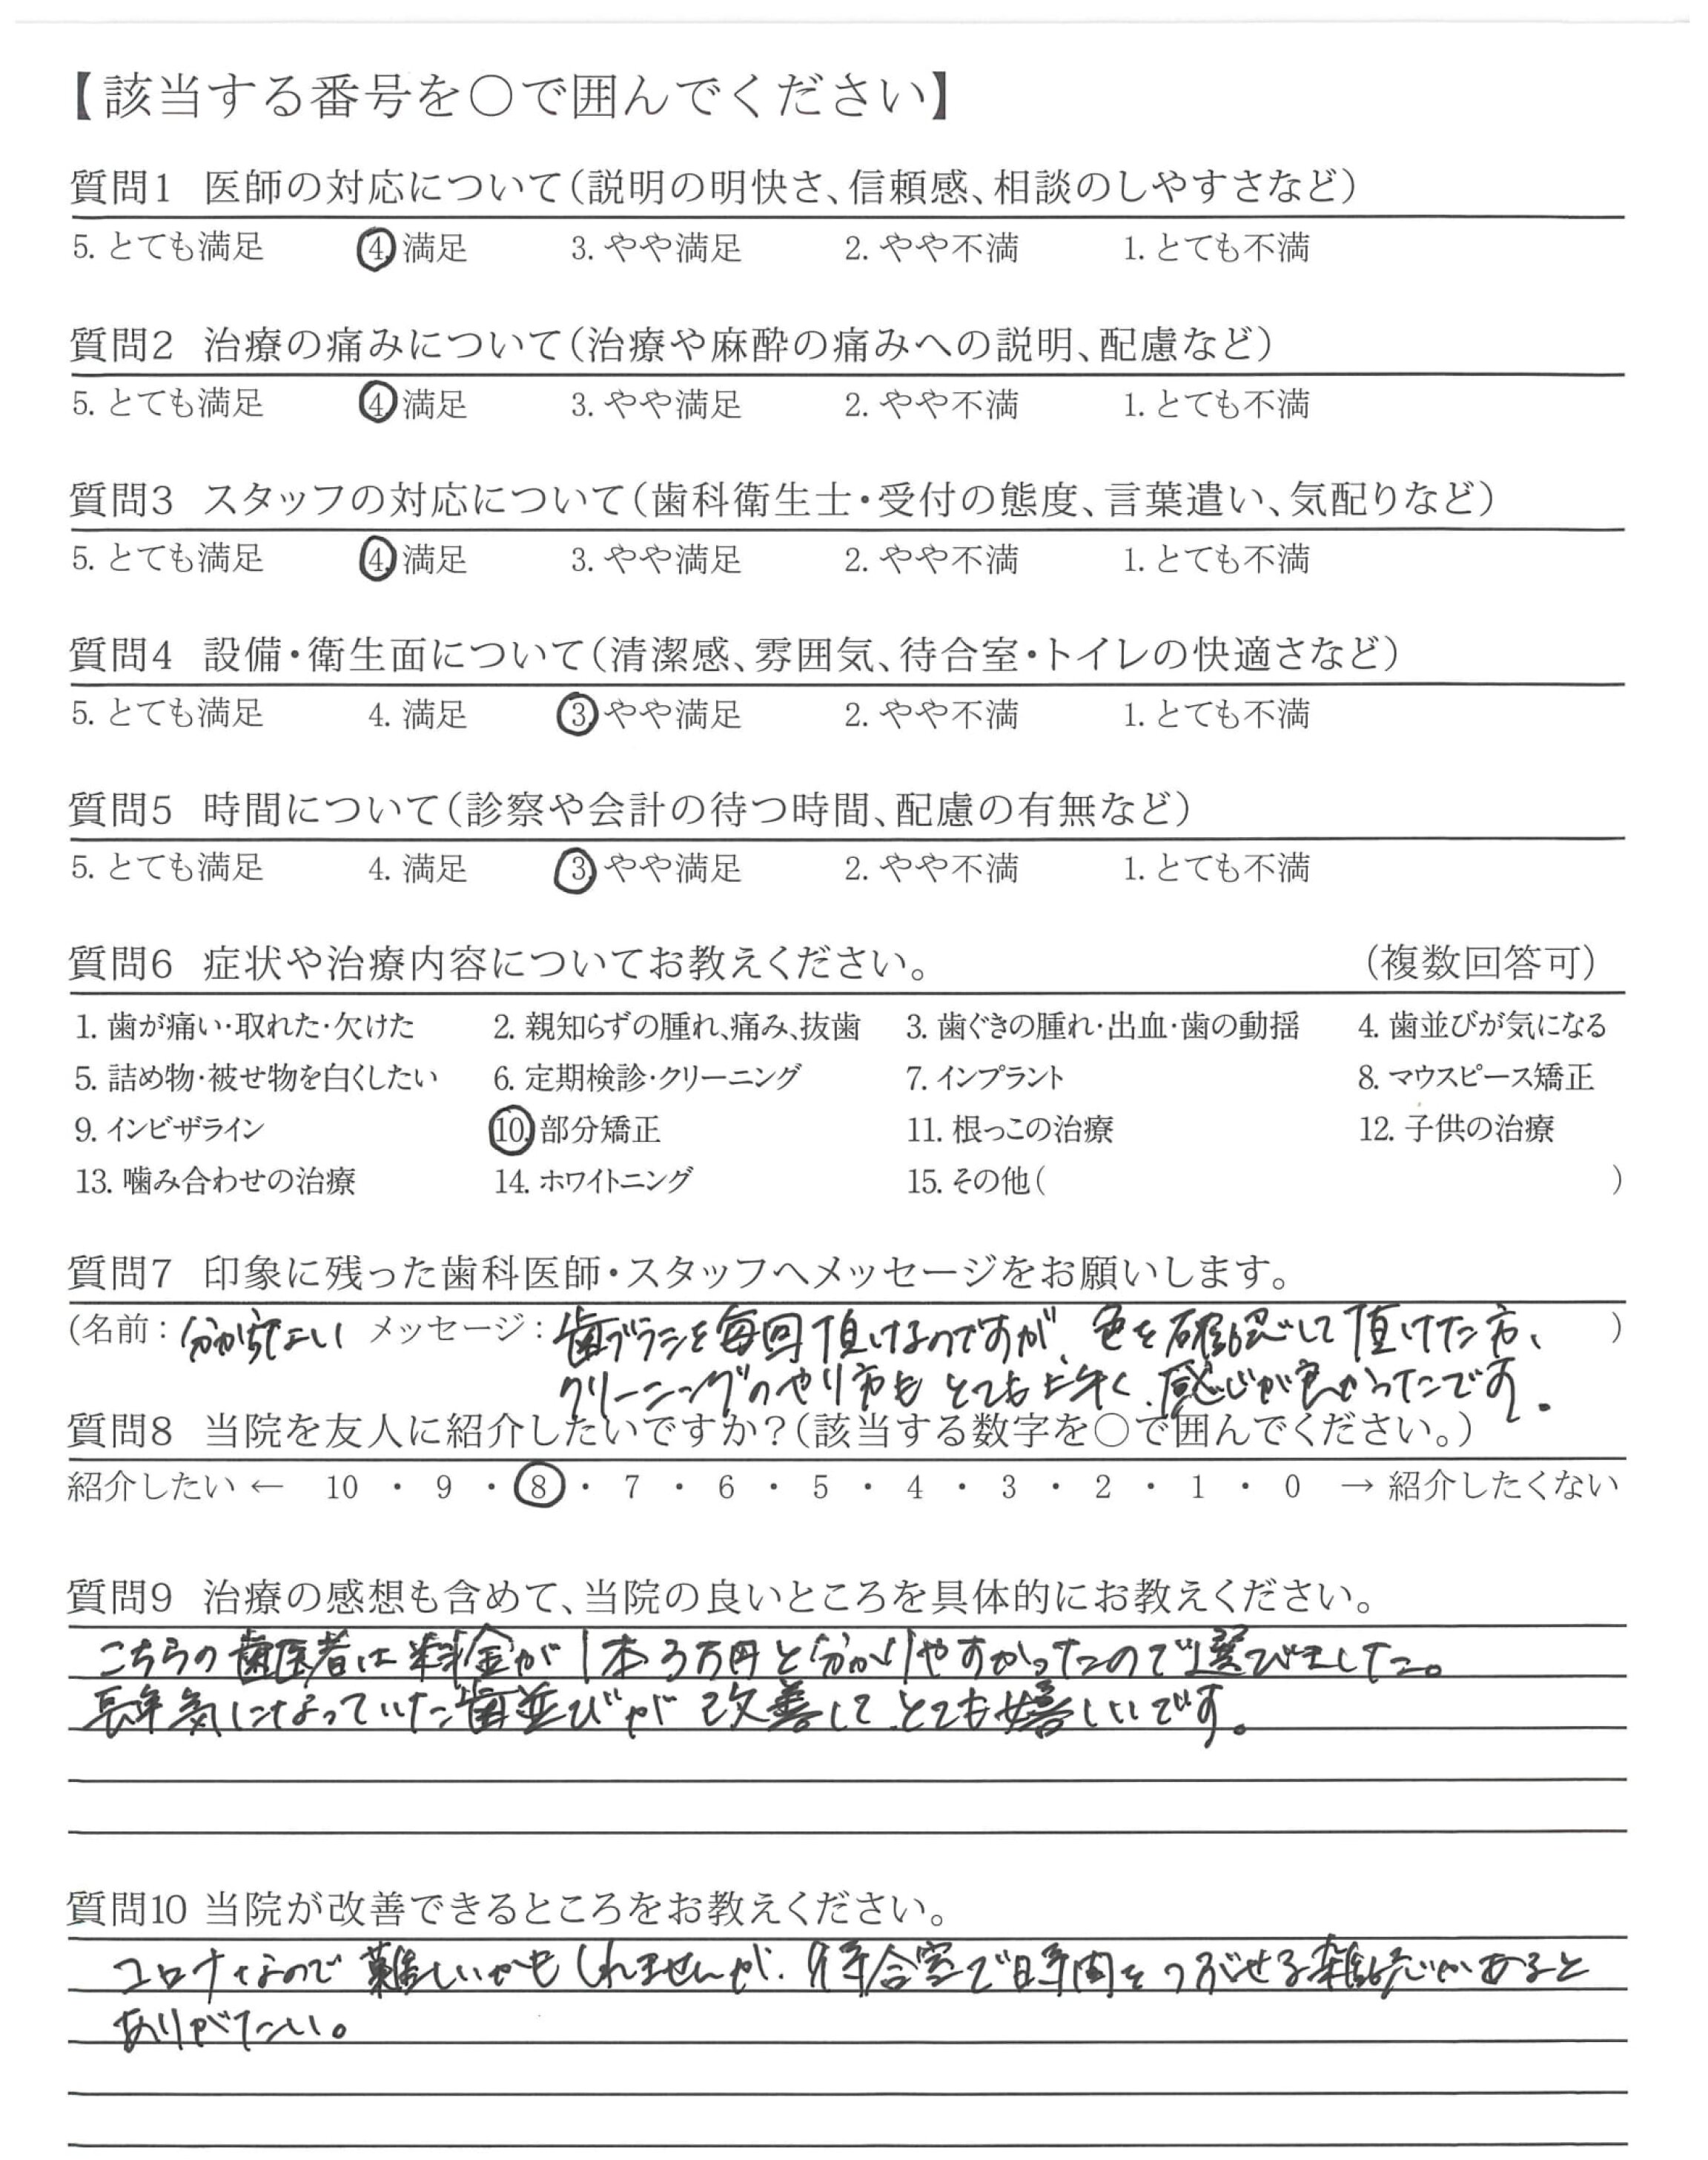 【該当する番号を○で囲んでください】
質問1 医師の対応について(説明の明快さ、信頼感、相談のしやすさなど)
5. とても満足 4. 満足 3. やや満足 2. やや不満 1. とても不満
質問2 治療の痛みについて(治療や麻酔の痛みへの説明、配慮など)
5. とても満足 4. 満足 3. やや満足 2. やや不満 1. とても不満
質問3 スタッフの対応について(歯科衛生士・受付の態度、言葉遣い、気配りなど)
5. とても満足 4. 満足 3. やや満足 2. やや不満 1. とても不満
質問4 設備・衛生面について(清潔感、雰囲気、待合室・トイレの快適さなど)
5. とても満足 4. 満足 3. やや満足 2. やや不満 1. とても不満
質問5 時間について(診察や会計の待つ時間、配慮の有無など)
5. とても満足 4. 満足 3. やや満足 2. やや不満 1. とても不満
質問6 症状や治療内容についてお教えください。 (複数回答可)
1. 歯が痛い・取れた・欠けた 2. 親知らずの腫れ、痛み、抜歯 3. 歯ぐきの腫れ・出血・歯の動揺 4. 歯並びが気になる
5. 詰め物・被せ物を白くしたい 6. 定期検診・クリーニング 7. インプラント 8. マウスピース矯正
9. インビザライン 10. 部分矯正 11. 根っこの治療 12. 子供の治療
13. 噛み合わせの治療 14. ホワイトニング 15. その他( )
質問7 印象に残った歯科医師・スタッフへメッセージをお願いします。
(名前: 分からない メッセージ: 歯ブラシを毎回頂けるのですが、色を確認して頂けた方、 )
クリーニングのやり方もとても上手く、感じが良かったです。
質問8 当院を友人に紹介したいですか?(該当する数字を○で囲んでください。)
紹介したい ← 10 ・ 9 ・ 8 ・ 7 ・ 6 ・ 5 ・ 4 ・ 3 ・ 2 ・ 1 ・ 0 → 紹介したくない
質問9 治療の感想も含めて、当院の良いところを具体的にお教えください。
こちらの歯医者は料金が1本3万円と分かりやすかったので選びました。
長年気になっていた歯並びが改善して、とても嬉しいです。
質問10 当院が改善できるところをお教えください。
コロナなので難しいかもしれませんが、待合室で時間をつぶせる雑誌があると
ありがたい。